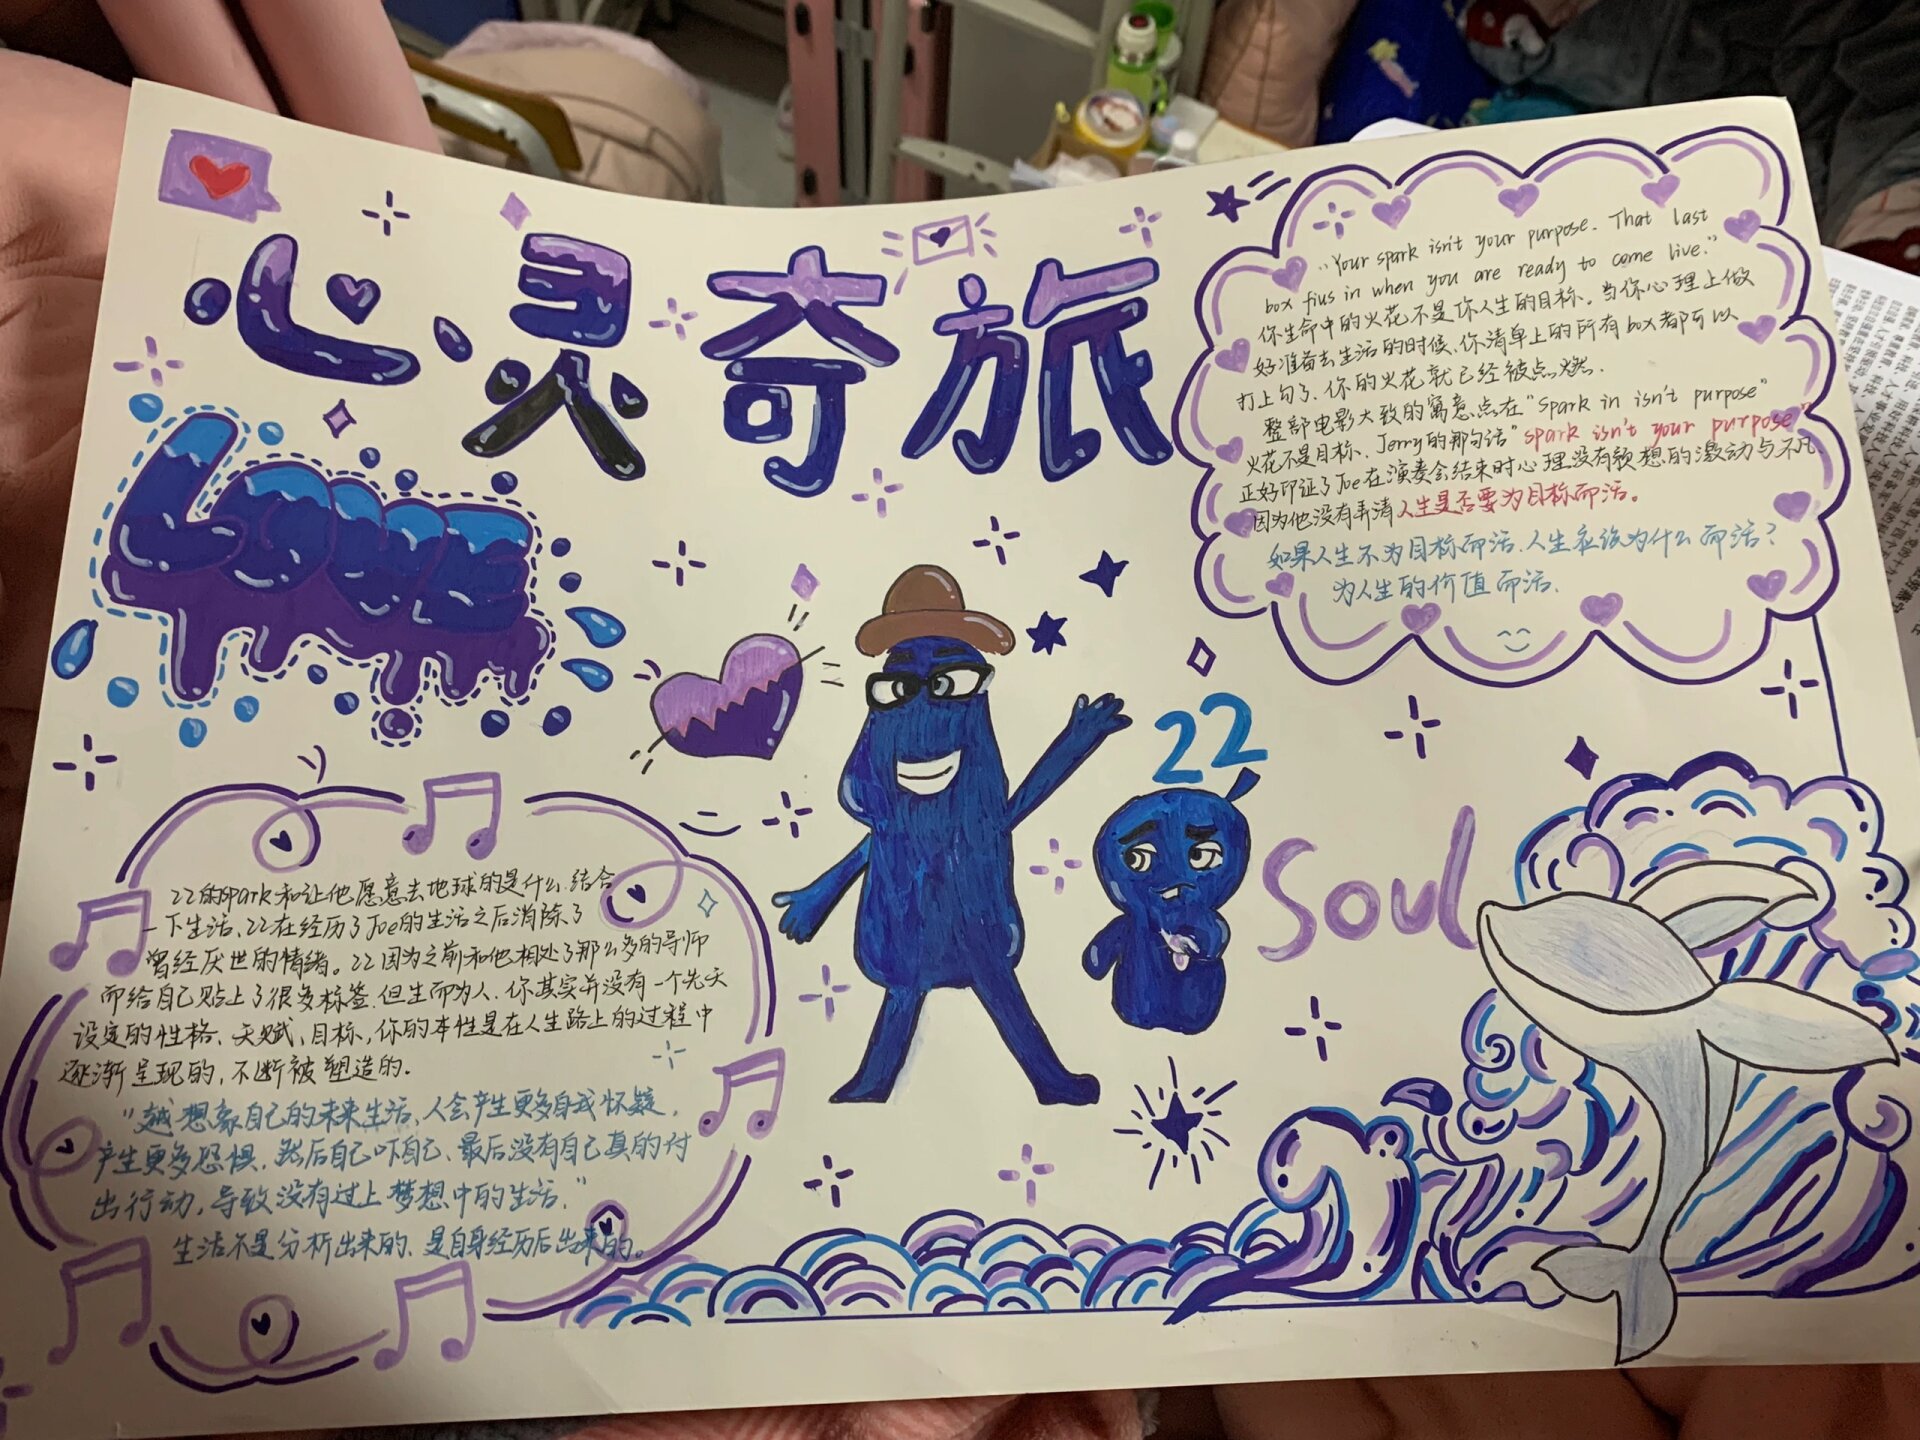 心灵奇旅
LOVE
"Your spark isn't your purpose. That last
box fius in when you are ready to come live."
你生命中的火花不是你人生的目标。当你心理上做
好准备去生活的时候、你清单上的所有box都可以
打上勾了、你的火花就已经被点燃.
整部电影大致的寓意点在"Spark in isn't purpose"
火花不是目标、Jerry的那句话"spark isn't your purpose"
正好印证了Joe在演奏会结束时心理没有预想的激动与不凡、
因为他没有弄清人生是否要为目标而活。
如果人生不为目标而活、人生应该为什么而活?
为人生的价值而活.
22
Soul
22的spark和让他愿意去地球的是什么.结合
一下生活、22在经历了Joe的生活之后消除了
曾经厌世的情绪。22因为之前和他相处了那么多的导师
而给自己贴上了很多标签.但生而为人、你其实并没有一个先天
设定的性格、天赋、目标,你的本性是在人生路上的过程中
逐渐呈现的,不断被塑造的.
"越想象自己的未来生活、人会产生更多自我怀疑.
产生更多恐惧.然后自己吓自己、最后没有自己真的付
出行动,导致没有过上梦想中的生活."
生活不是分析出来的、是自身经历后出来的。